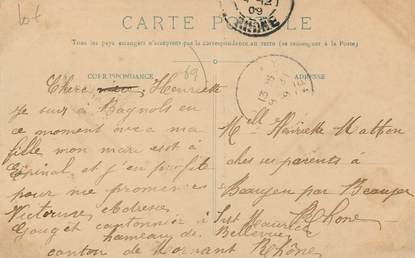 Lot
12
09
RHONE
CARTE POSTALE
Tous les pays étrangers n'acceptent pas la correspondance au recto (se renseigner à la Poste)
CORRESPONDANCE
ADRESSE
69
Chere Henriette
Je suis a Bagnols en
ce moment avec ma
fille mon mari est à
Epinal et j'en profite
pour me promener
Victorine Adresse
Gouget cantonnier à St Maurice
hameau de Bellevue
canton de Mornant Rhône
Melle Henriette Mathon
chez ses parents à
Beaujeu par Beaujeu
Rhone